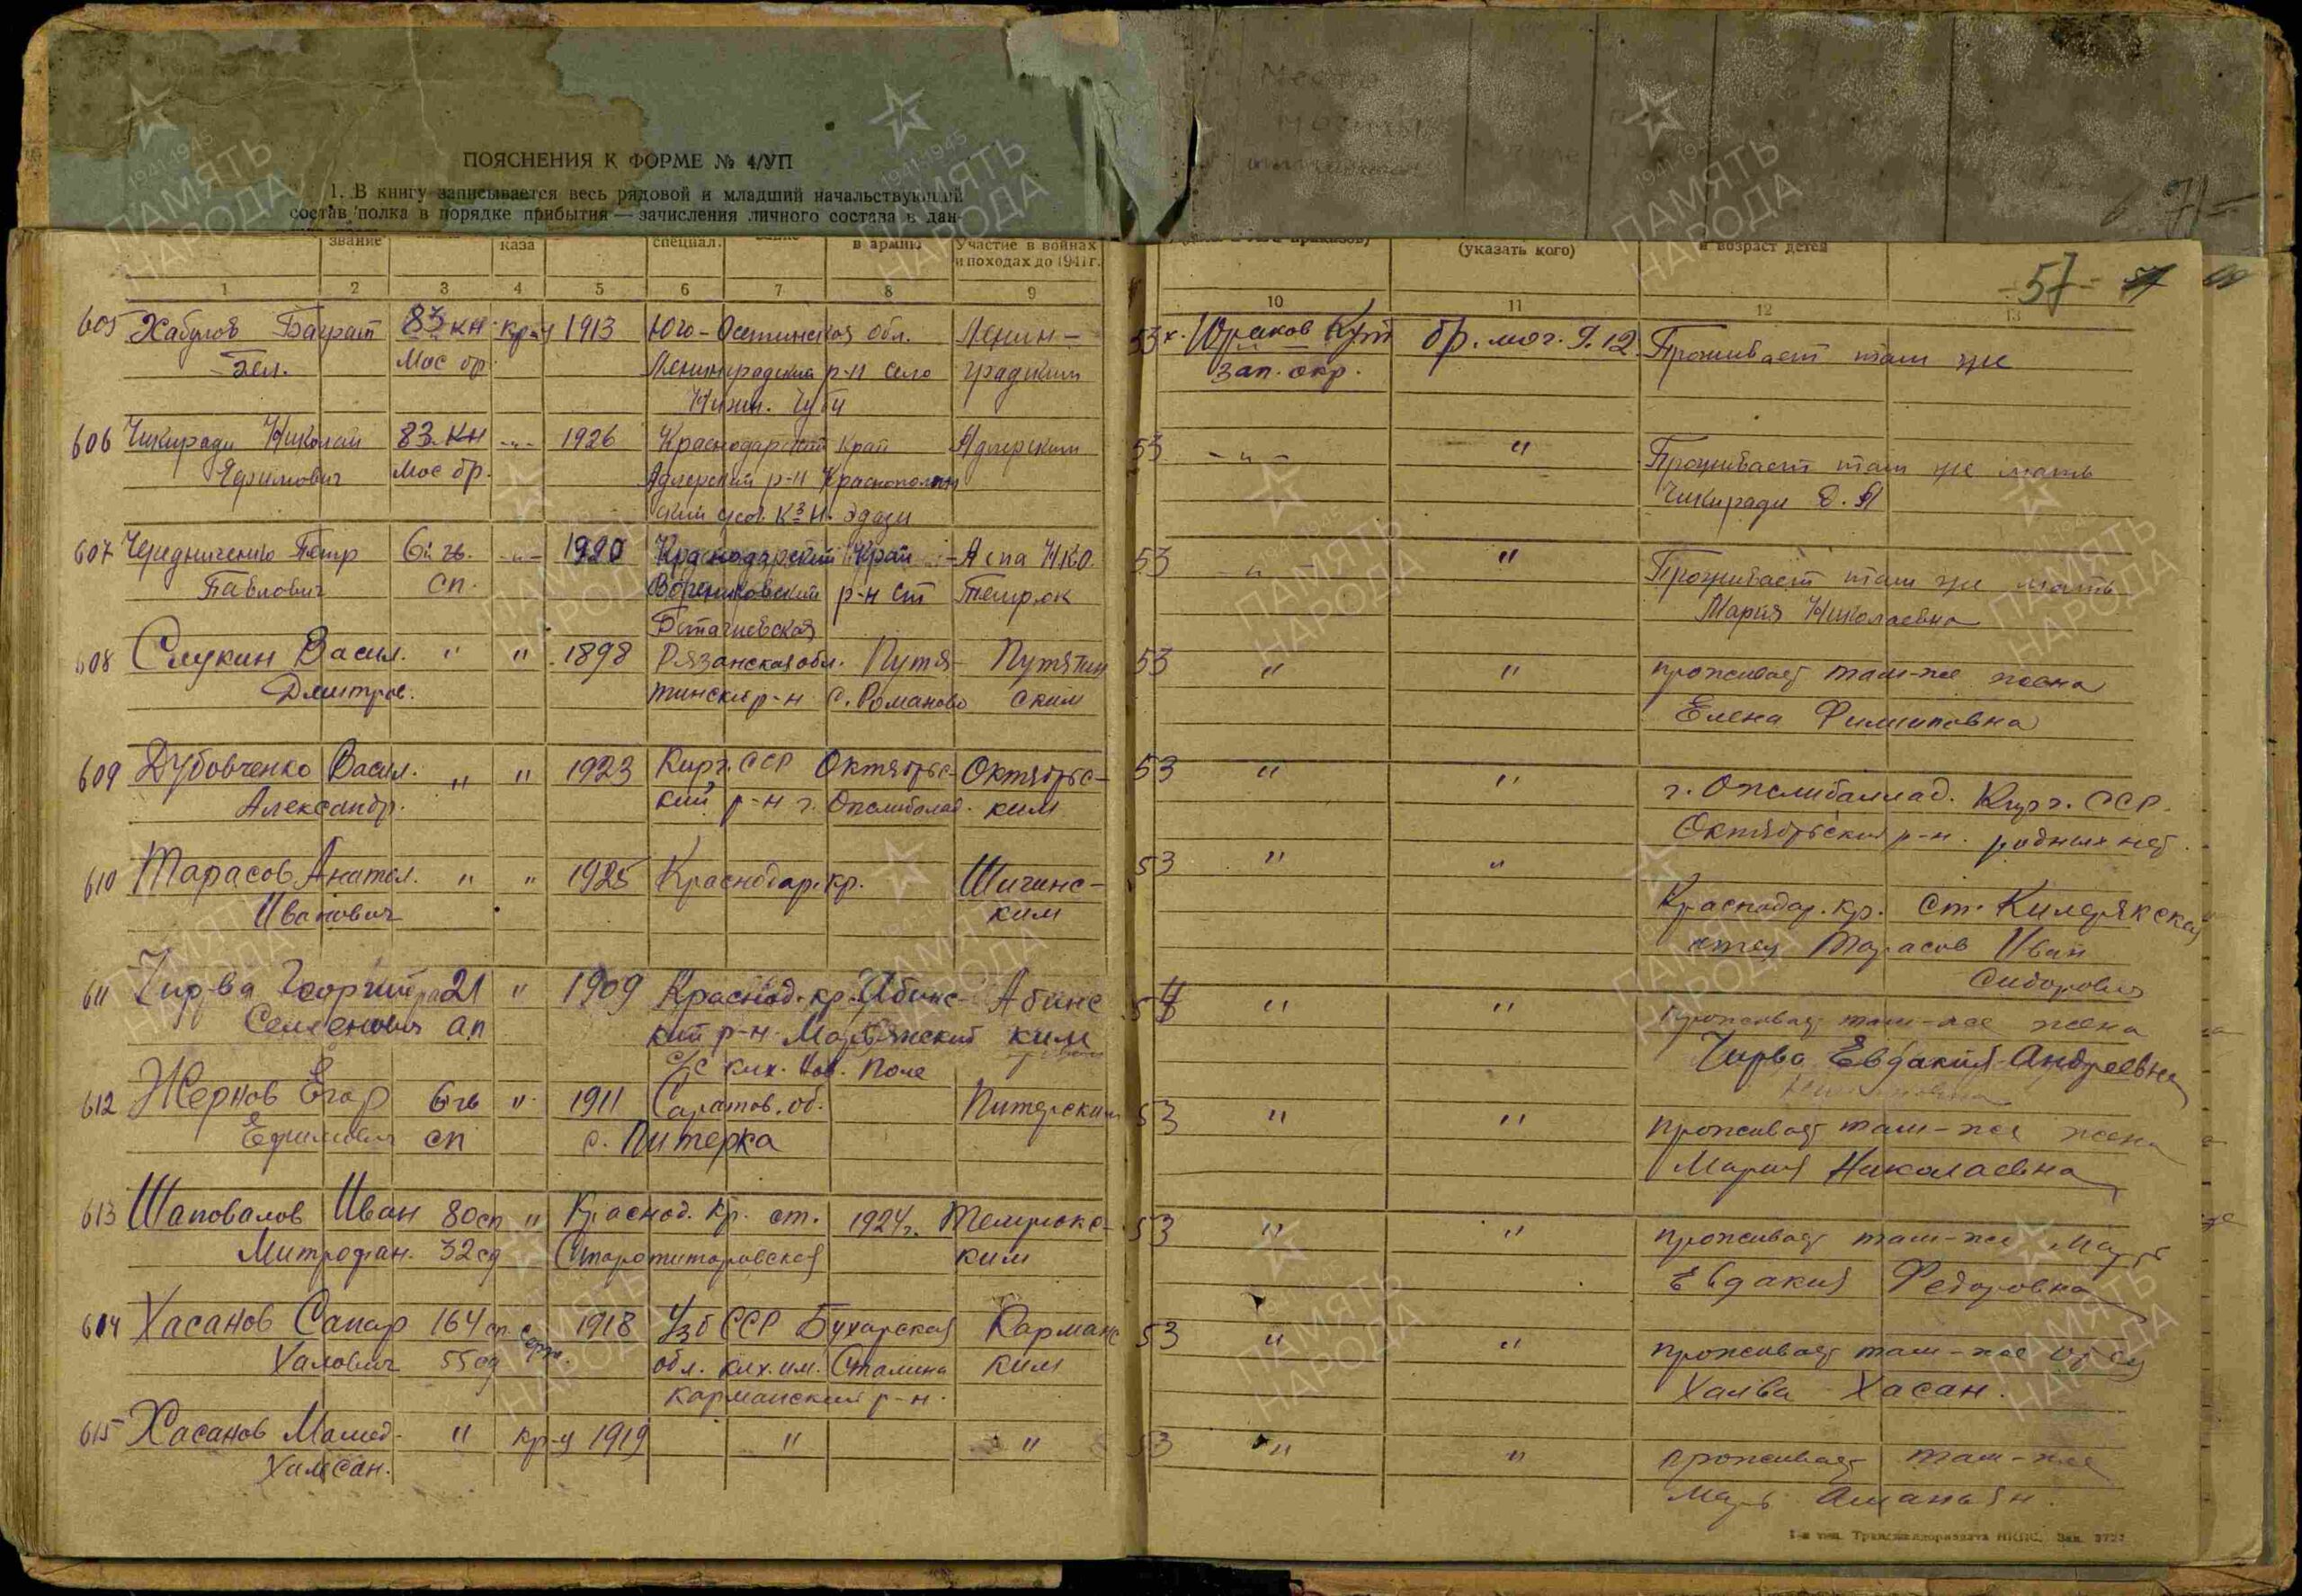 ПОЯСНЕНИЯ К ФОРМЕ № 4/УП
1. В книгу записывается весь рядовой и младший начальствующий
состав полка в порядке прибытия — зачисления личного состава в дан-
Место
могилы
71-
звание каза специал. в армию Участие в войнах
и походах до 1941 г.
(указать кого) и возраст детей
57-
1 2 3 4 5 6 7 8 9
10 11 12 13
605 Хабулов Баграт 83 кн кр-ц 1913 Юго-Осетинская обл. Ленин-
мос бр. Ленинградский р-н село градским
53 х. Юраков Кут бр. мог. 9.12. Проживает там же
зап. окр.
606 Чикиради Николай 83 кн -"- 1926 Краснодарский край Адлерским
Яфимович мос бр. Адлерский р-н
53 -"- " Проживает там же мать
Чикиради
607 Чередниченко Петр 6 гв. -"- 1920 Краснодарский Край
Павлович сп. р-н ст
53 -"- " Проживает там же мать
Мария Николаевна
608 Слукин Васил. " " 1898 Рязанская обл. Путя- Путятин
Дмитров. тинский р-н с. Романово ским
53 " " проживает там-же жена
Елена Филиповна
609 Дубовченко Васил. " " 1923 Кирг. ССР Октябрьс- Октябрьс-
Александр. кий р-н г. ким
53 " " г. Кирг. ССР.
Октябрьский р-н. родных нет.
610 Тарасов Анатол. " " 1925 Краснодар. кр.
Иванович ким
53 " " Краснодар. кр. ст.
отец Тарасов Иван
Сидорович
611 Чирва Георгий 21 " 1909 Краснод. кр. Абинс- Абинс
Семенович ап кий р-н ким
с/с Пов. Поле
54 " " проживает там-же жена
Чирва Евдакия Андреевна
612 Жернов Егор 6 гв " 1911 Саратов. об. Питерским
Ефимович сп с. Питерка
53 " " проживает там-же жена
Мария Николаевна
613 Шаповалов Иван 80 сп " Краснод. кр. ст. 1924 г. Темрюкс-
Митрофан. 32 сд Старотитаровская ким
53 " " проживает там-же мать
Евдакия Федоровна
614 Хасанов Сапар 164 сп. серж. 1918 Узб ССР Бухарская Карманс
Халович 55 сд обл. Сталина ким
Карманский р-н.
53 " " проживает там-же отец
Хасан.
615 Хасанов Мамед. " кр-ц 1919 " "
53 " " проживает там-же
мать